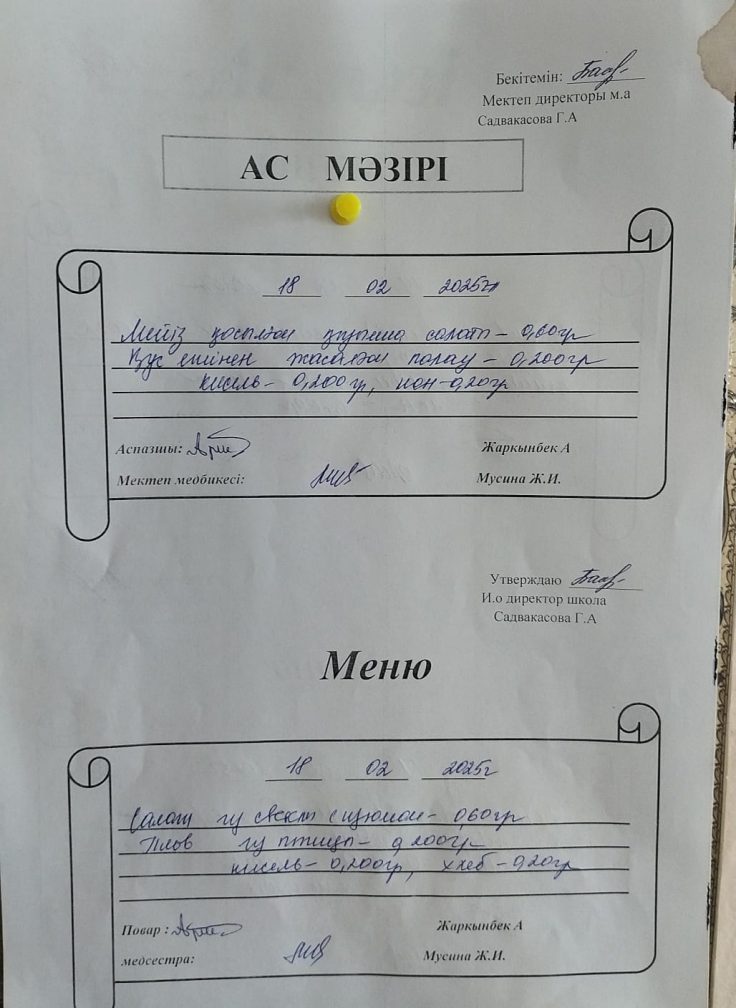 Бекітемін:
Мектеп директоры м.а
Садвакасова Г.А
АС МӘЗІРІ
18 02 2025г
Мейіз қосылған қызылша салаты - 0,60гр
Құс етінен жасалған палау - 0,200гр
кисель - 0,200гр, нан - 0,20гр
Аспазшы: Жаркынбек А
Мектеп медбикесі: Мусина Ж.И.
Утверждаю
И.о директор школа
Садвакасова Г.А
Меню
18 02 2025г
Салат из свеклы с изюмом - 0,60гр
Плов из птицы - 0,200гр
кисель - 0,200гр, хлеб - 0,20гр
Повар : Жаркынбек А
медсестра: Мусина Ж.И.